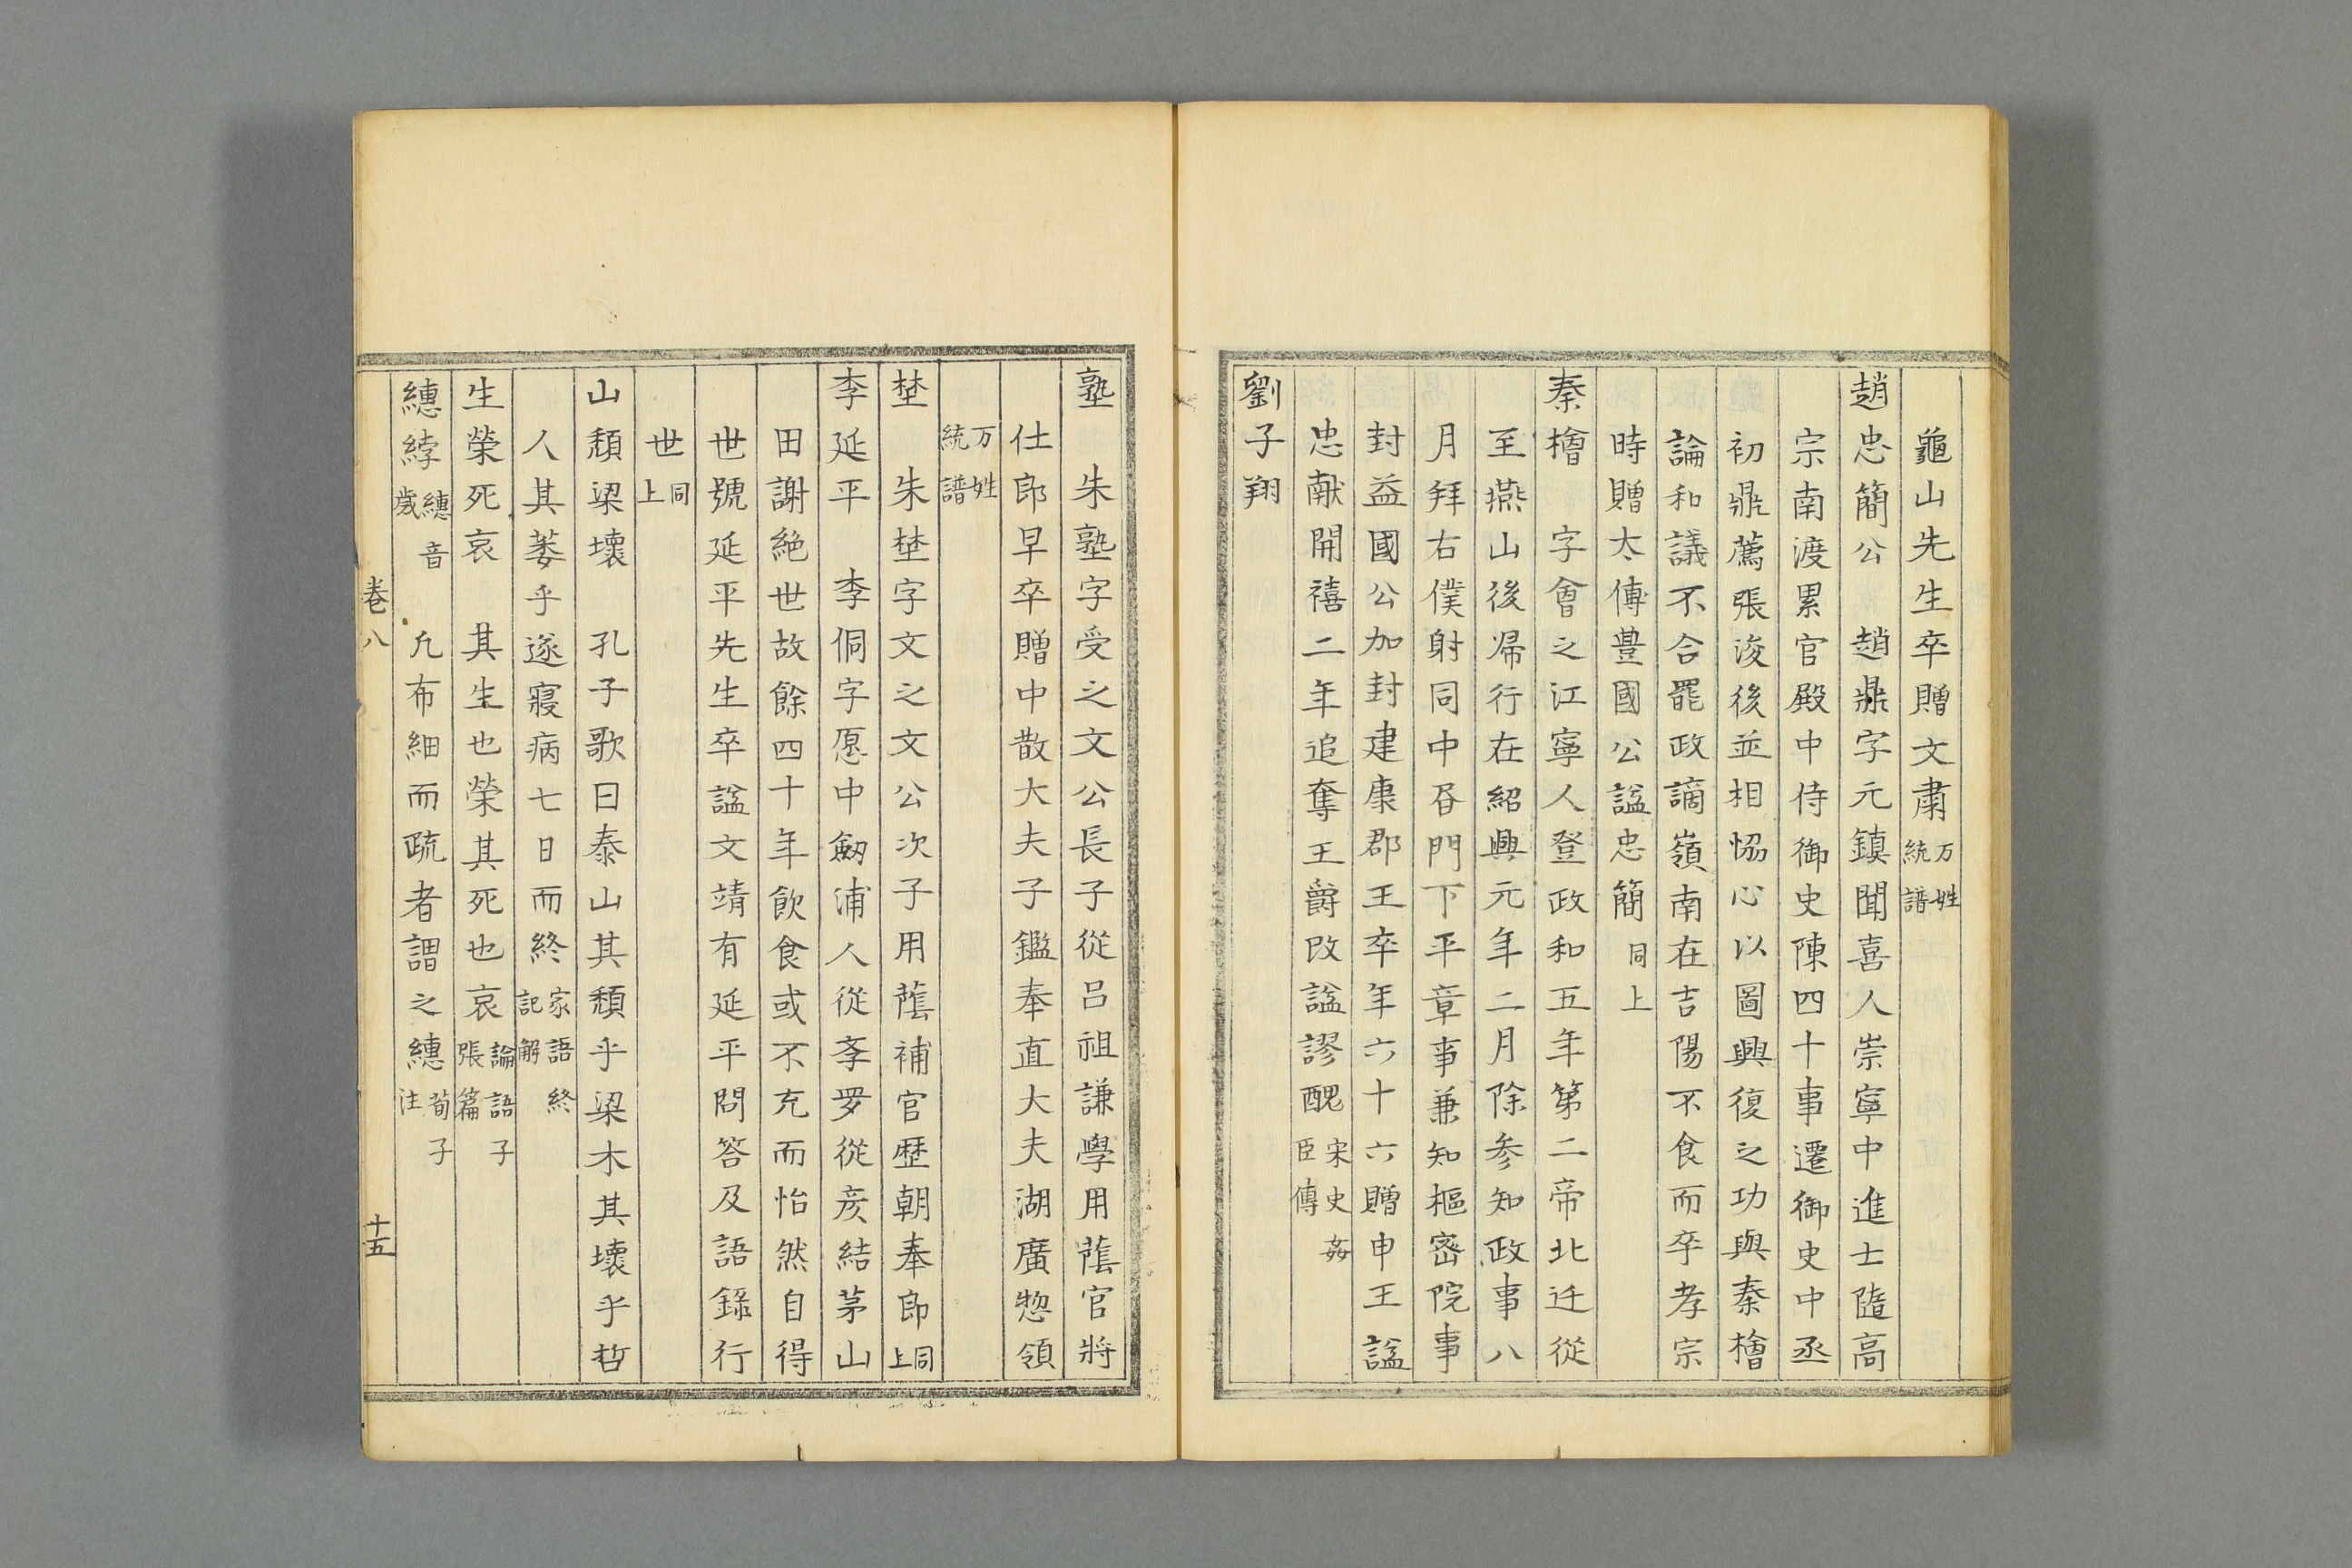 龜山先生卒贈文肅万姓統譜
趙忠簡公　趙鼎字元鎮聞喜人崇寧中進士隨高
宗南渡累官殿中侍御史陳四十事遷御史中丞
初鼎薦張浚後並相恊心以圖興復之功與秦檜
論和議不合罷政謫嶺南在吉陽不食而卒孝宗
時贈太傅豊國公謚忠簡同上
秦檜　字會之江寧人登政和五年第二帝北迁從
至燕山後歸行在紹興元年二月除参知政事八
月拜右僕射同中書門下平章事兼知樞密院事
封益國公加封建康郡王卒年六十六贈申王謚
忠献開禧二年追奪王爵改謚謬醜宋史姦臣傳
劉子翔
塾　朱塾字受之文公長子從呂祖謙學用蔭官將
仕郎早卒贈中散大夫子鑑奉直大夫湖廣惣領
万姓統譜
埜　朱埜字文之文公次子用蔭補官歴朝奉郎同上
李延平　李侗字愿中劔浦人從李罗從彦結茅山
田謝絶世故餘四十年飲食或不充而怡然自得
世號延平先生卒謚文靖有延平問答及語錄行
世同上
山頹梁壞　孔子歌曰泰山其頹乎梁木其壞乎哲
人其萎乎遂寢病七日而終家語終記解
生榮死哀　其生也榮其死也哀論語子張篇
繐綍繐音歲　凡布細而疏者謂之繐荀子注
卷八　十五